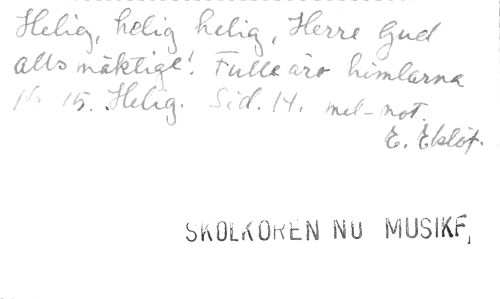 Helig, helig helig, Herre Gud
allsmäktige! Fulla äro himlarna
15. Helig. Sid. 14. mel-not.
E. Eklöf.
SKOLKÖREN NU MUSIKF,